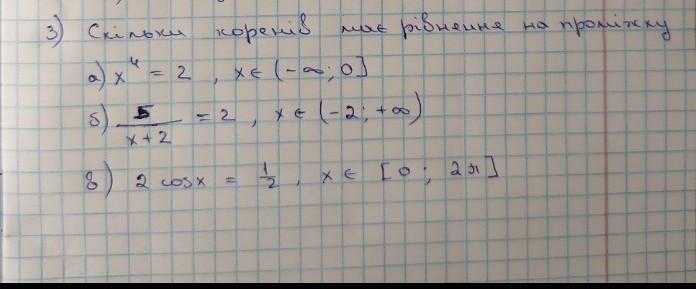 3) Скільки коренів має рівнення на проміжку
а) x⁴ = 2 , x ∈ (-∞; 0]
б) 5/(x+2) = 2 , x ∈ (-2; +∞)
в) 2 cos x = 1/2 , x ∈ [0; 2π]